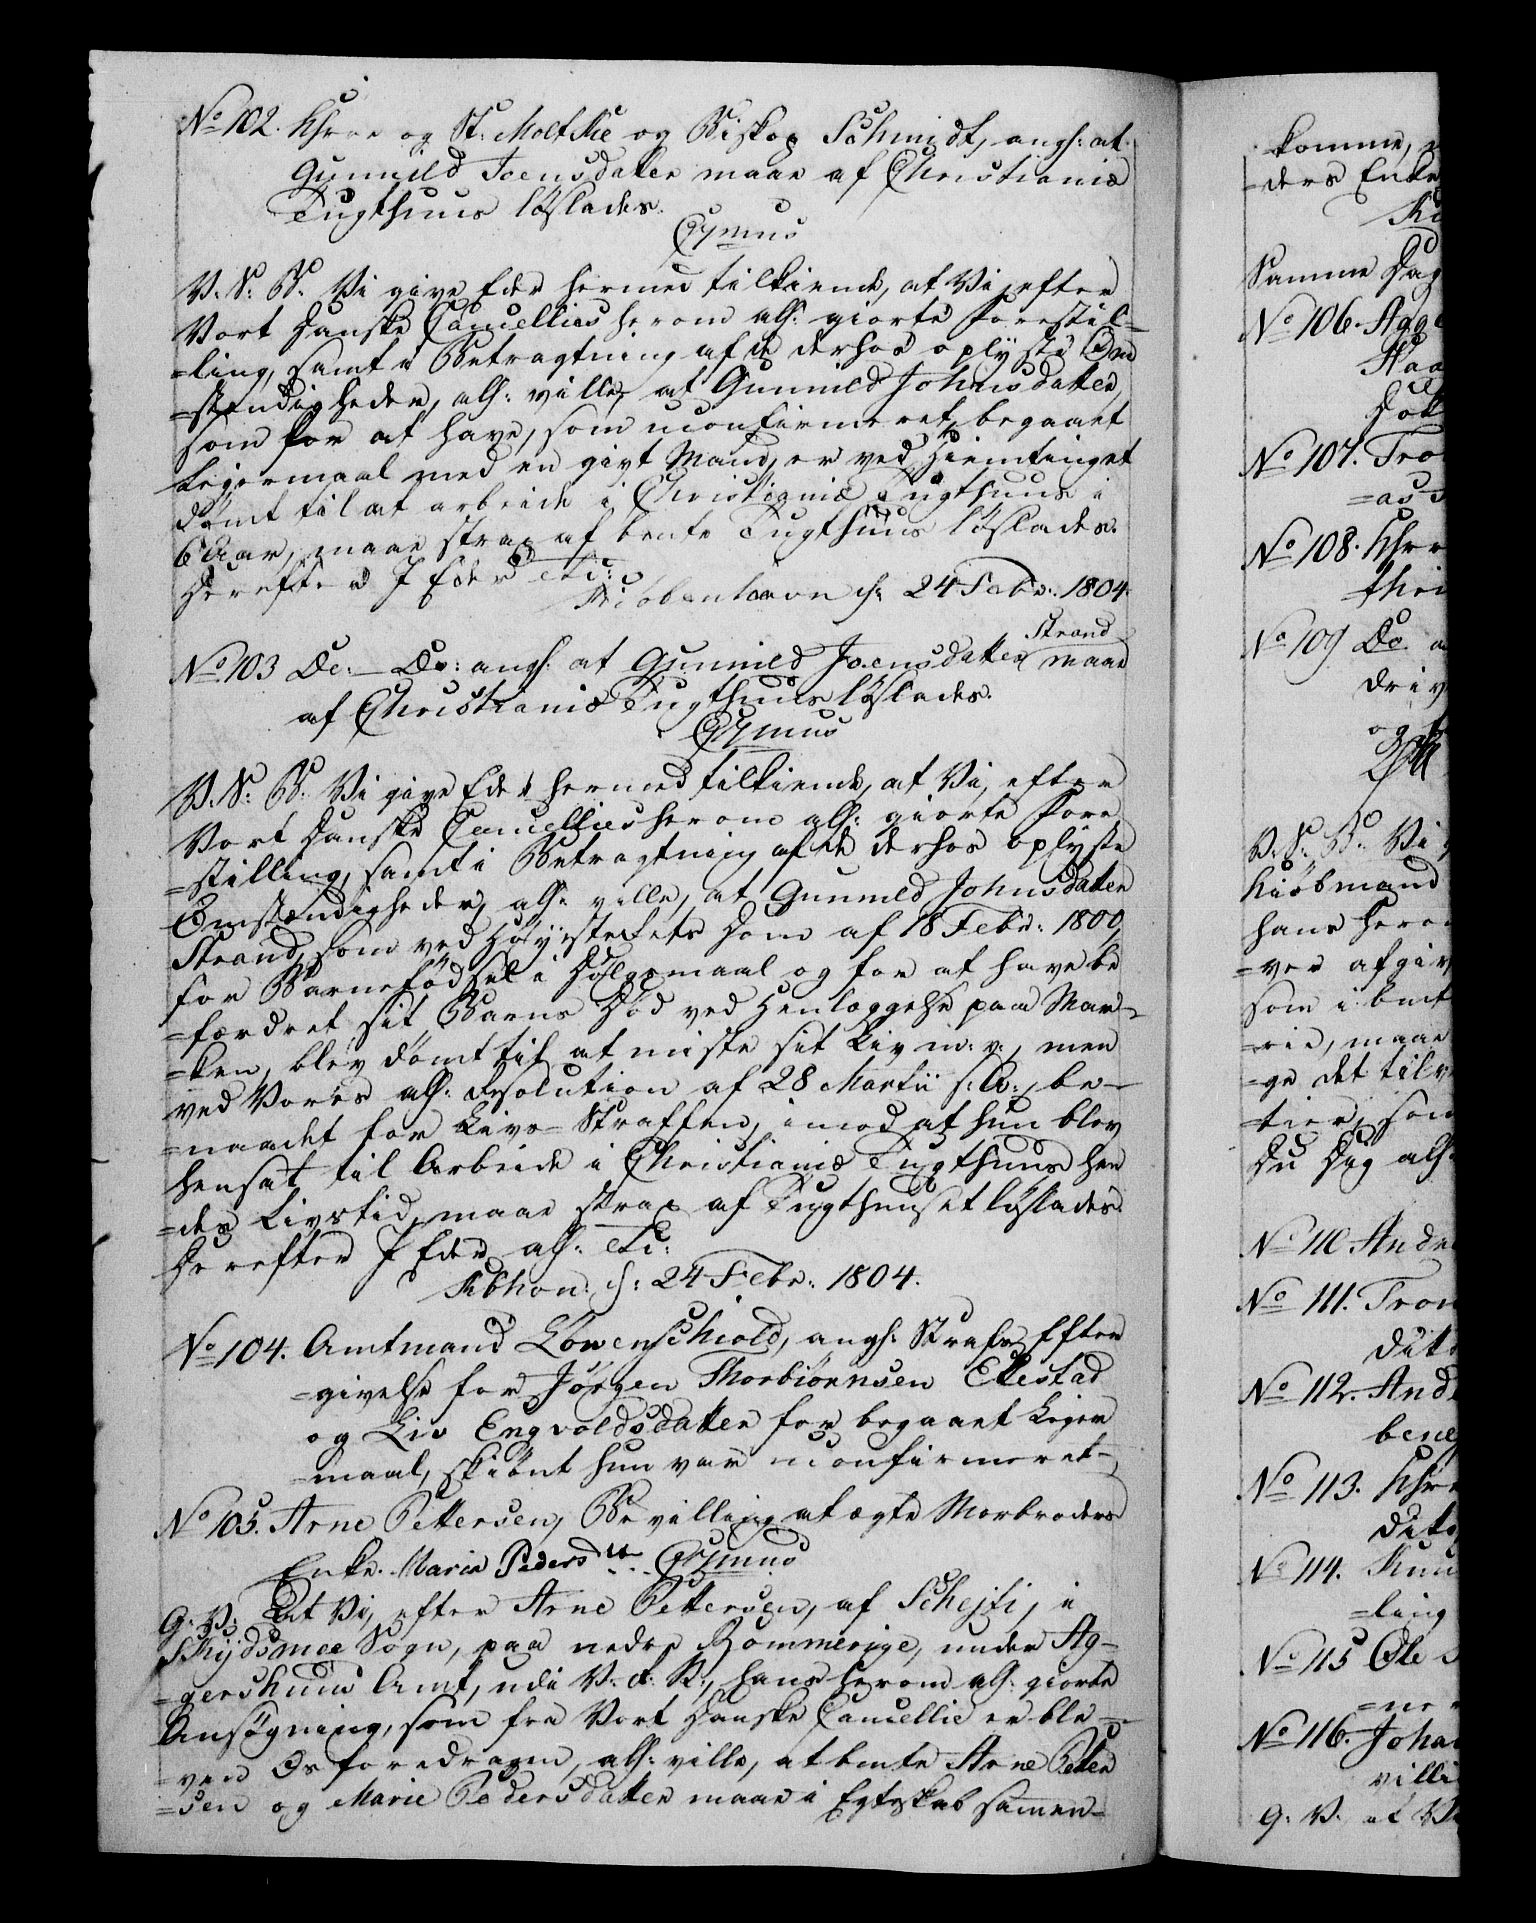 No 102. Khrre og St: Moltke og Biskop Schmidt, angl: at
Gunnild Joensdatter maae af Christianiæ
Tugthuus løslades.
V. S: B: Vi give Eder hermed tilkiende, at Vi, efter
Vort Danske Cancellies herom all: giorte Forestil-
=ling, samt i Betragtning af de derhos oplyste Om
=stændigheder, all: ville, at Gunnild Johnsdatter,
som for at have, som uconfirmeret, begaaet
Leiermaal med en givt Mand, er ved Hiemtinget
dømt til at arbeide i Christianiæ Tugthuus i
6 Aar, maae strax af bemte Tugthuus løslades.
Derefter I Eder etc:
Kiøbenhavn d: 24 Febr: 1804.
No 103 De: — Do: angl: at Gunnild Joensdatter Strand maae
af Christianiæ Tugthuus løslades.
V. S: B: Vi give Eder hermed tilkiende, at Vi, efter
Vort Danske Cancellies herom all: giorte Fore
=stilling, samt i Betragtning af de derhos oplyste
Omstændigheder, all: ville, at Gunnild Johnsdatter
Strand, som ved Høyesterets Dom af 18 Febr: 1800,
for Barnefødsel i Dølgsmaal og for at have be
=fordret sit Barns Død ved Henlæggelse paa Mar-
=ken, blev dømt til at miste sit Liv m: v:, men
ved Vores all: Resolution af 28 Martii s: A:, be-
=naadet for Livs-Straffen, imod at hun blev
hensat til Arbeide i Christianiæ Tugthuus hen
=des Livstid, maae strax af Tugthuuset løslades.
Derefter I Eder all: etc:
Kbhvn: d: 24 Febr: 1804.
No 104. Amtmand Løwenschiold, angl: Strafs Efter
=givelse for Jørgen Thorbiørnsen Ekestad
og Liv Engvoldsdatter for begaaet Leier
=maal, skiønt hun var uconfirmeret.
No 105. Arne Pettersen, Bevilling at ægte Morbroders
Enke. Marie Peders dtr
G: V: At Vi, efter Arne Pettersen, af Schejti, i
Skydsmoe Sogn, paa nedre Rommerige, under Ag-
=gershuus Amt, udi V: R: N:, hans herom all: giorte
Ansøgning, som fra Vort Danske Cancellie er ble-
=ven Os foredragen, all: ville, at bemte Arne Petter
=sen og Marie Pedersdatter maae i Egteskab samen-
komme,
=ders Enke
Samme Dag
No 106.
No 107.
No 108. Khrr
No 109 Do
V: S: B: Vi
Kiøbmand
hans herom
=ver afgiv
som i bemt
=rie, maae
=ge det tilv
=tier, som
Du Dig all:
No 110 Andr
No 111. Tron
No 112. And
No 113. Khrr
No 114. Knu
=ling
No 115 Ole
No 116. Joha
villi
G: V. at V